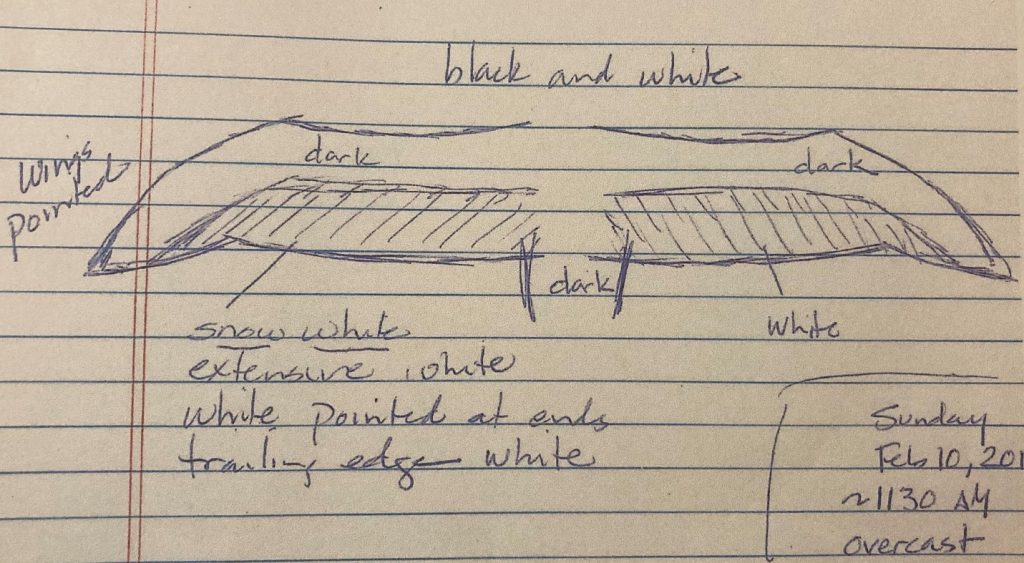 black and white
wings
pointed
dark
dark
dark
snow white
extensive white
white pointed at ends
trailing edge white
white
Sunday
Feb 10, 201
~1130 AM
overcast